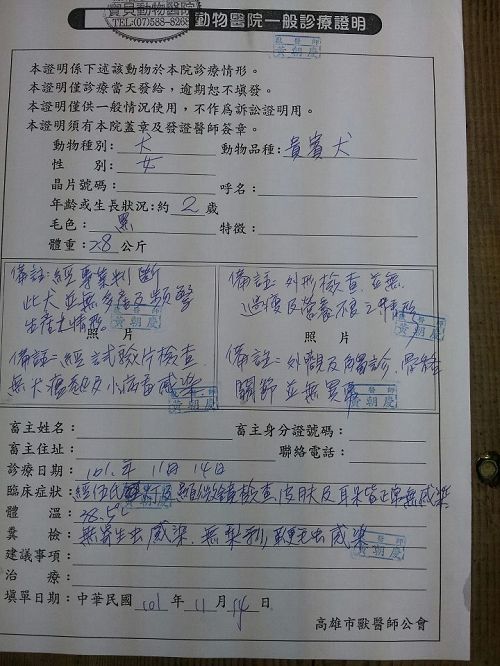 寶貝動物醫院
TEL:(07)588-8265
動物醫院一般診療證明
獸醫師
黃朝慶
本證明係下述該動物於本院診療情形。
本證明僅診療當天發給，逾期恕不填發。
本證明僅供一般情況使用，不作爲訴訟證明用。
本證明須有本院蓋章及發證醫師簽章。
動物種別：犬 動物品種：貴賓犬
性別：女
晶片號碼： 呼名：
年齡或生長狀況：約 2 歲
毛色：黑 特徵：
體重：2.8 公斤
備註：經專業判斷
此犬並無多產及頻繁
生產之情形。
照片
備註：經試驗片檢查
無犬瘟熱及小病毒感染
黃朝慶
備註：外形檢查並無
過瘦及營養不良之情形
照片
備註：外觀及觸診，骨骼
關節並無異常
黃朝慶
畜主姓名： 畜主身分證號碼：
畜主住址： 聯絡電話：
診療日期：101年 11月 14日
臨床症狀：經伍氏燈及顯微鏡檢查，皮膚及耳朵皆正常無感染
體溫：38.5℃
糞檢：無寄生虫感染，無梨形鞭毛虫感染
黃朝慶
建議事項：
治療：
填單日期：中華民國 101 年 11 月 14 日
高雄市獸醫師公會